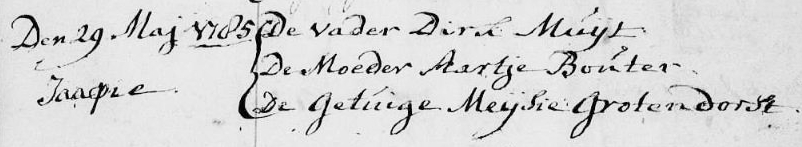 Den 29 Maj 1785 De Vader Dirk Muyt
De Moeder Aartje Bouter
Jaapie
De Getuige Meijsie Grotendorst